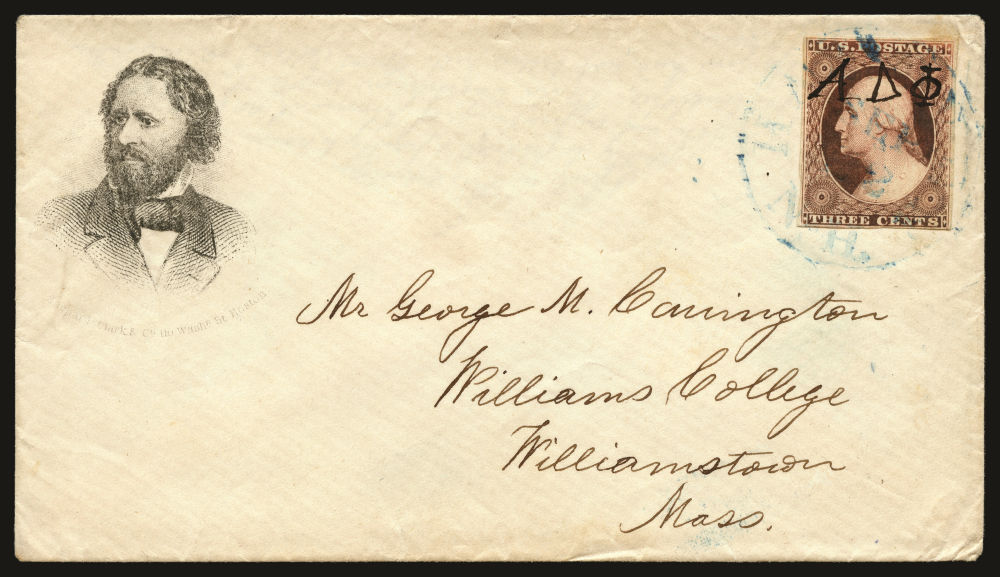 U.S. POSTAGE
Α Δ Φ
THREE CENTS
Clark & Co 110 Wash. St. Boston
Mr George M. Carrington
Williams College
Williamstown
Mass.